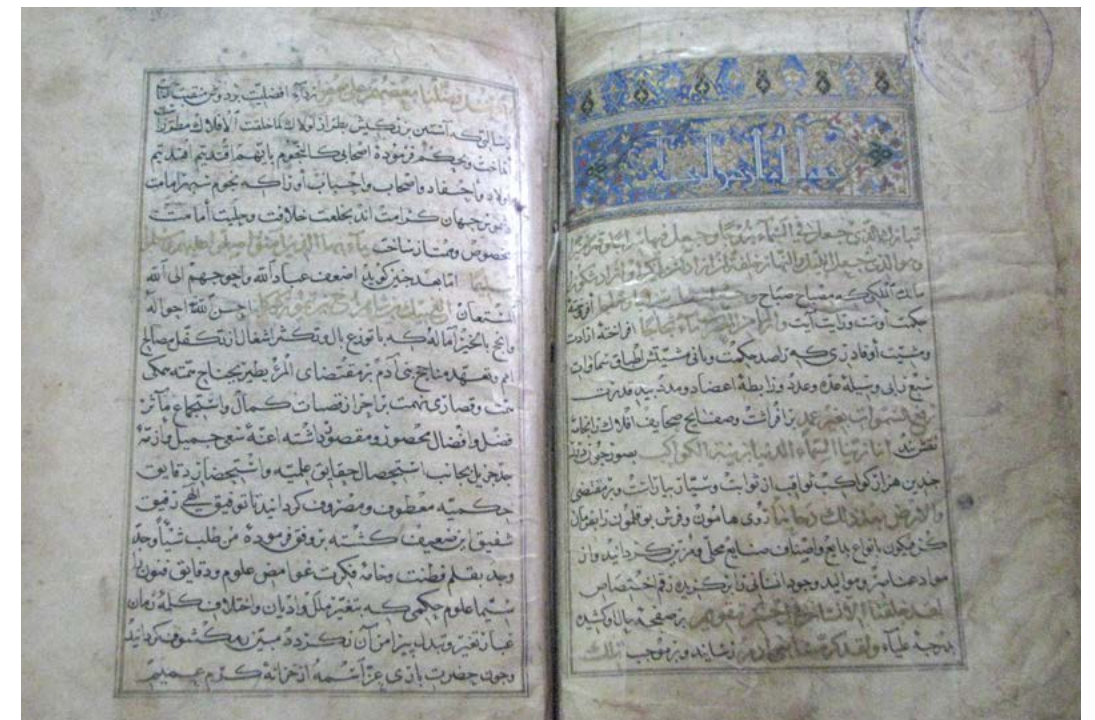 بسم الله الرحمن الرحيم
تبارك الذي جعل في السماء بروجا وجعل فيها سراجا وقمرا منيرا
وهو الذي جعل الليل والنهار خلفة لمن اراد ان يذكر او اراد شكورا
مالك الملكى كه مصباح صباح وجعل الشمس سراجا افروخته
حكمت اوست ورايت آيت افراخته ارادت
ومشيت او قادرى كه راصد حكمت وبانى مشيتش اطباق سماوات
سبع را بى وسيلۀ عده وعدد ورابطۀ اعضاد ومدد بيد قدرت
رفع السموات بغير عمد بر افراشت وصفايح صحايف افلاك را
نقشبند انا زينا السماء الدنيا بزينة الكواكب بصور
جندين هزار كواكب ثواقب از ثوابت وسيار بياراست وبر مقتضى
والارض بعد ذلك دحاها روى هامون وفرش بوقلمون را بفرمان
كن فيكون بانواع بدايع واصناف صنايع محلى ومزين كردانيد واز
مواد عناصر ومواليد وجود انسانى را بركزيده رقم اختصاص
لقد خلقنا الانسان في احسن تقويم بر صفحۀ حال او كشيده
بدرجۀ علياء ولقد كرمنا بنى آدم رسانيد وبر موجب تلك
الرسل فضلنا بعضهم على بعض افضليت بود وبر منقبت
رسالتى كه آستين بزركيش بطراز لولاك لما خلقت الافلاك مطرز
ساخت وبحكم فرمودۀ اصحابى كالنجوم بايهم اقتديتم اهتديتم
اولاد واحفاد واصحاب واحباب او را كه نجوم سپهر امامت
جهان كرامت اند بخلعت خلافت وحليت امامت
مخصوص وممتاز ساخت يا ايها الذين آمنوا صلوا عليه وسلموا
تسليما اما بعد جنين كويد اضعف عباد الله واحوجهم الى الله
المستعان الغ بيك بن شاهرخ بن تيمور كوركان احسن الله احواله
وانجح بالخير آماله كه با توزع بال وتكثر اشغال از تكفل مصالح
امم وتعهد مناجح بنى آدم بر مقتضاى المرء يطير بجناح همته همكى
همت وقصارى نهمت بر احراز قصبات كمال واستجماع مآثر
فضل وافضال محصور ومقصور داشته اعنۀ سعى جميل وازمۀ
جد جزيل بجانب استحصال حقايق علميه واستحضار دقايق
حكميه معطوف ومصروف كردانيد تا توفيق الهى رفيق
شفيق بن ضعيف كشته بر وفق فرمودۀ من طلب شيئا وجد
وجد بقلم فطنت وخامۀ فكرت غوامض علوم ودقايق فنون را
سيما علوم حكمى كه بتغير ملل واديان واختلاف كلۀ زمان
غبار تغير وتبدل پيرامن آن نكردد مبين ومكشوف كردانيد
وجون حضرت بارى عز اسمه از خزانۀ كرم عميم